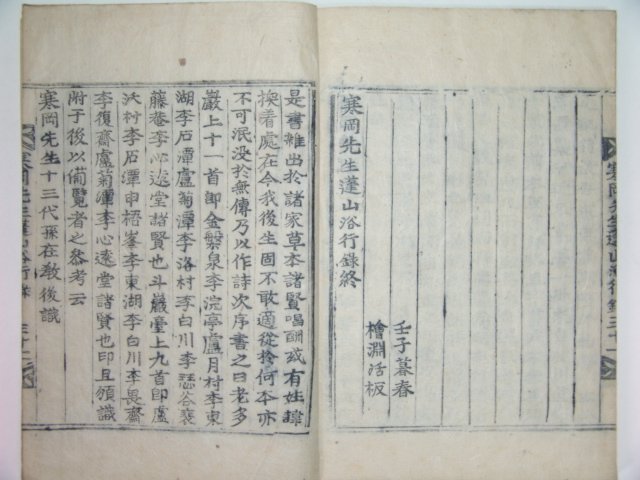 寒岡先生蓬山浴行錄 三十一
寒岡先生蓬山浴行錄終
壬子暮春
檜淵活板
是書雜出於諸家草本諸賢唱酬或有姓諱
換着處在今我後生固不敢適從於何本亦
不可泯没於無傳乃以作詩次序書之曰老多
巖上十一首卽金槃泉李浣亭盧月村李東
湖李石潭盧菊潭李洛村李白川李瑟谷裵
藤菴李心遠堂諸賢也斗巖臺上九首卽盧
沃村李石潭申梧峯李東湖李白川李畏齋
李復齋盧菊潭李心遠堂諸賢也印且頒識
附于後以備覽者之叅考云
寒岡先生十三代孫在敎後識
寒岡先生蓬山浴行錄 三十二